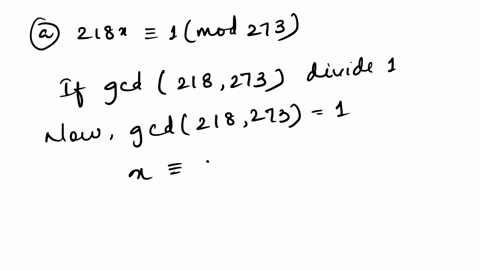 (a) 218x ≡ 1 (mod 273)
If gcd (218, 273) divide 1
Now, gcd(218, 273) = 1
x ≡ .